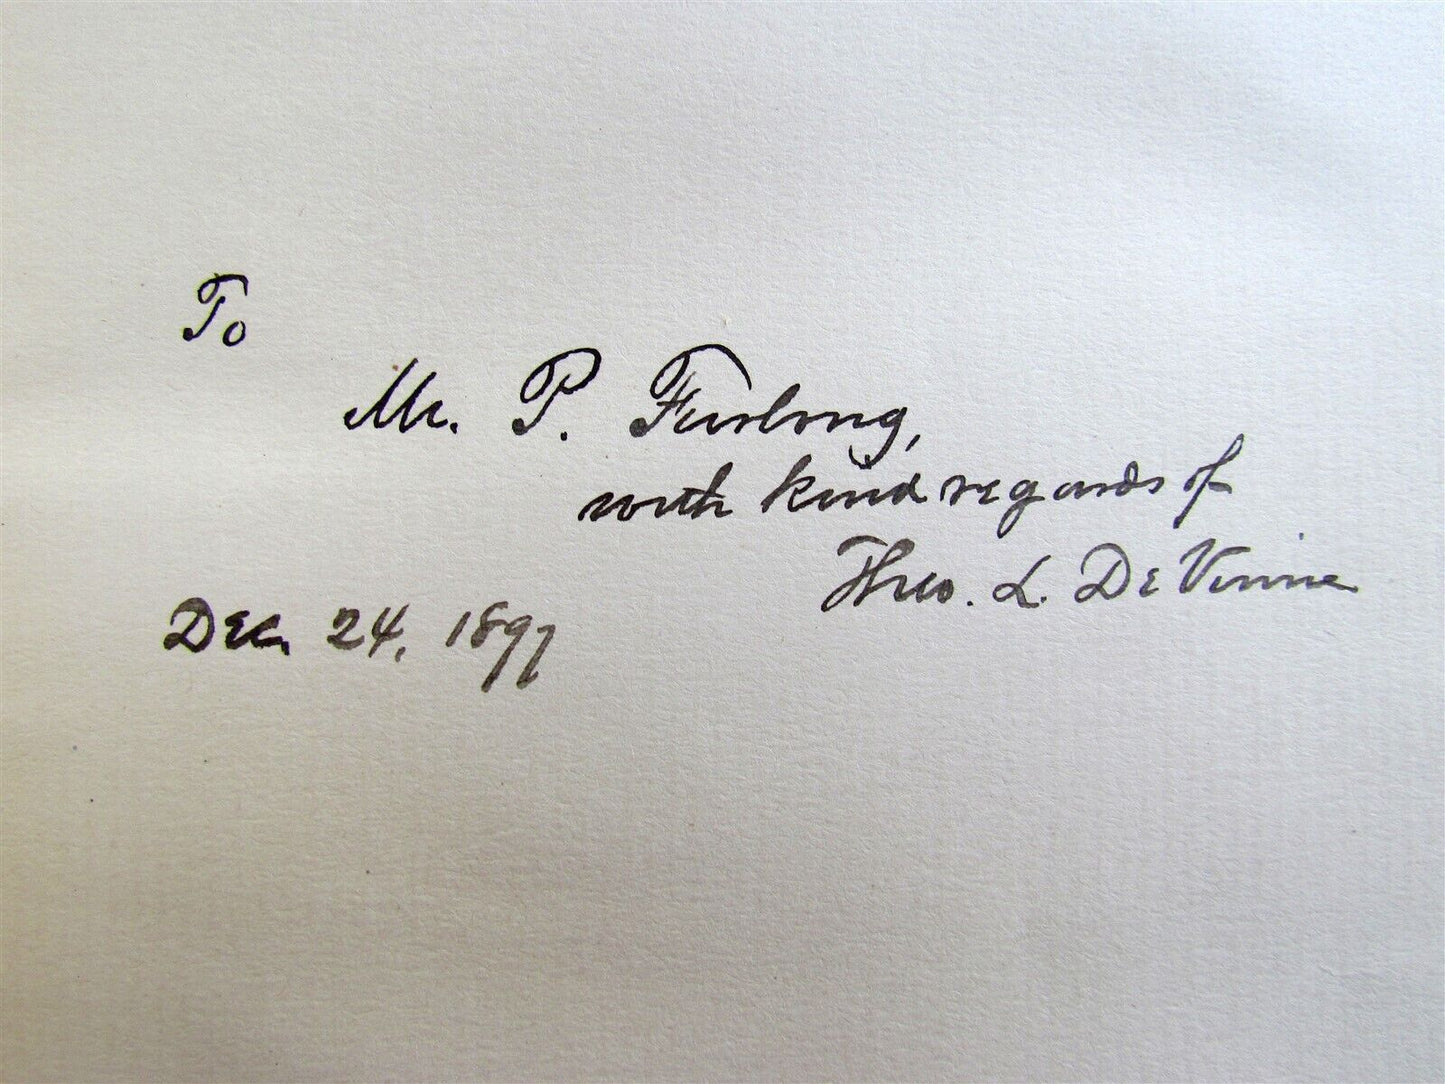 To
Mr. P. Furlong,
with kind regards of
Theo. L. De Vinne
Dec. 24, 1897